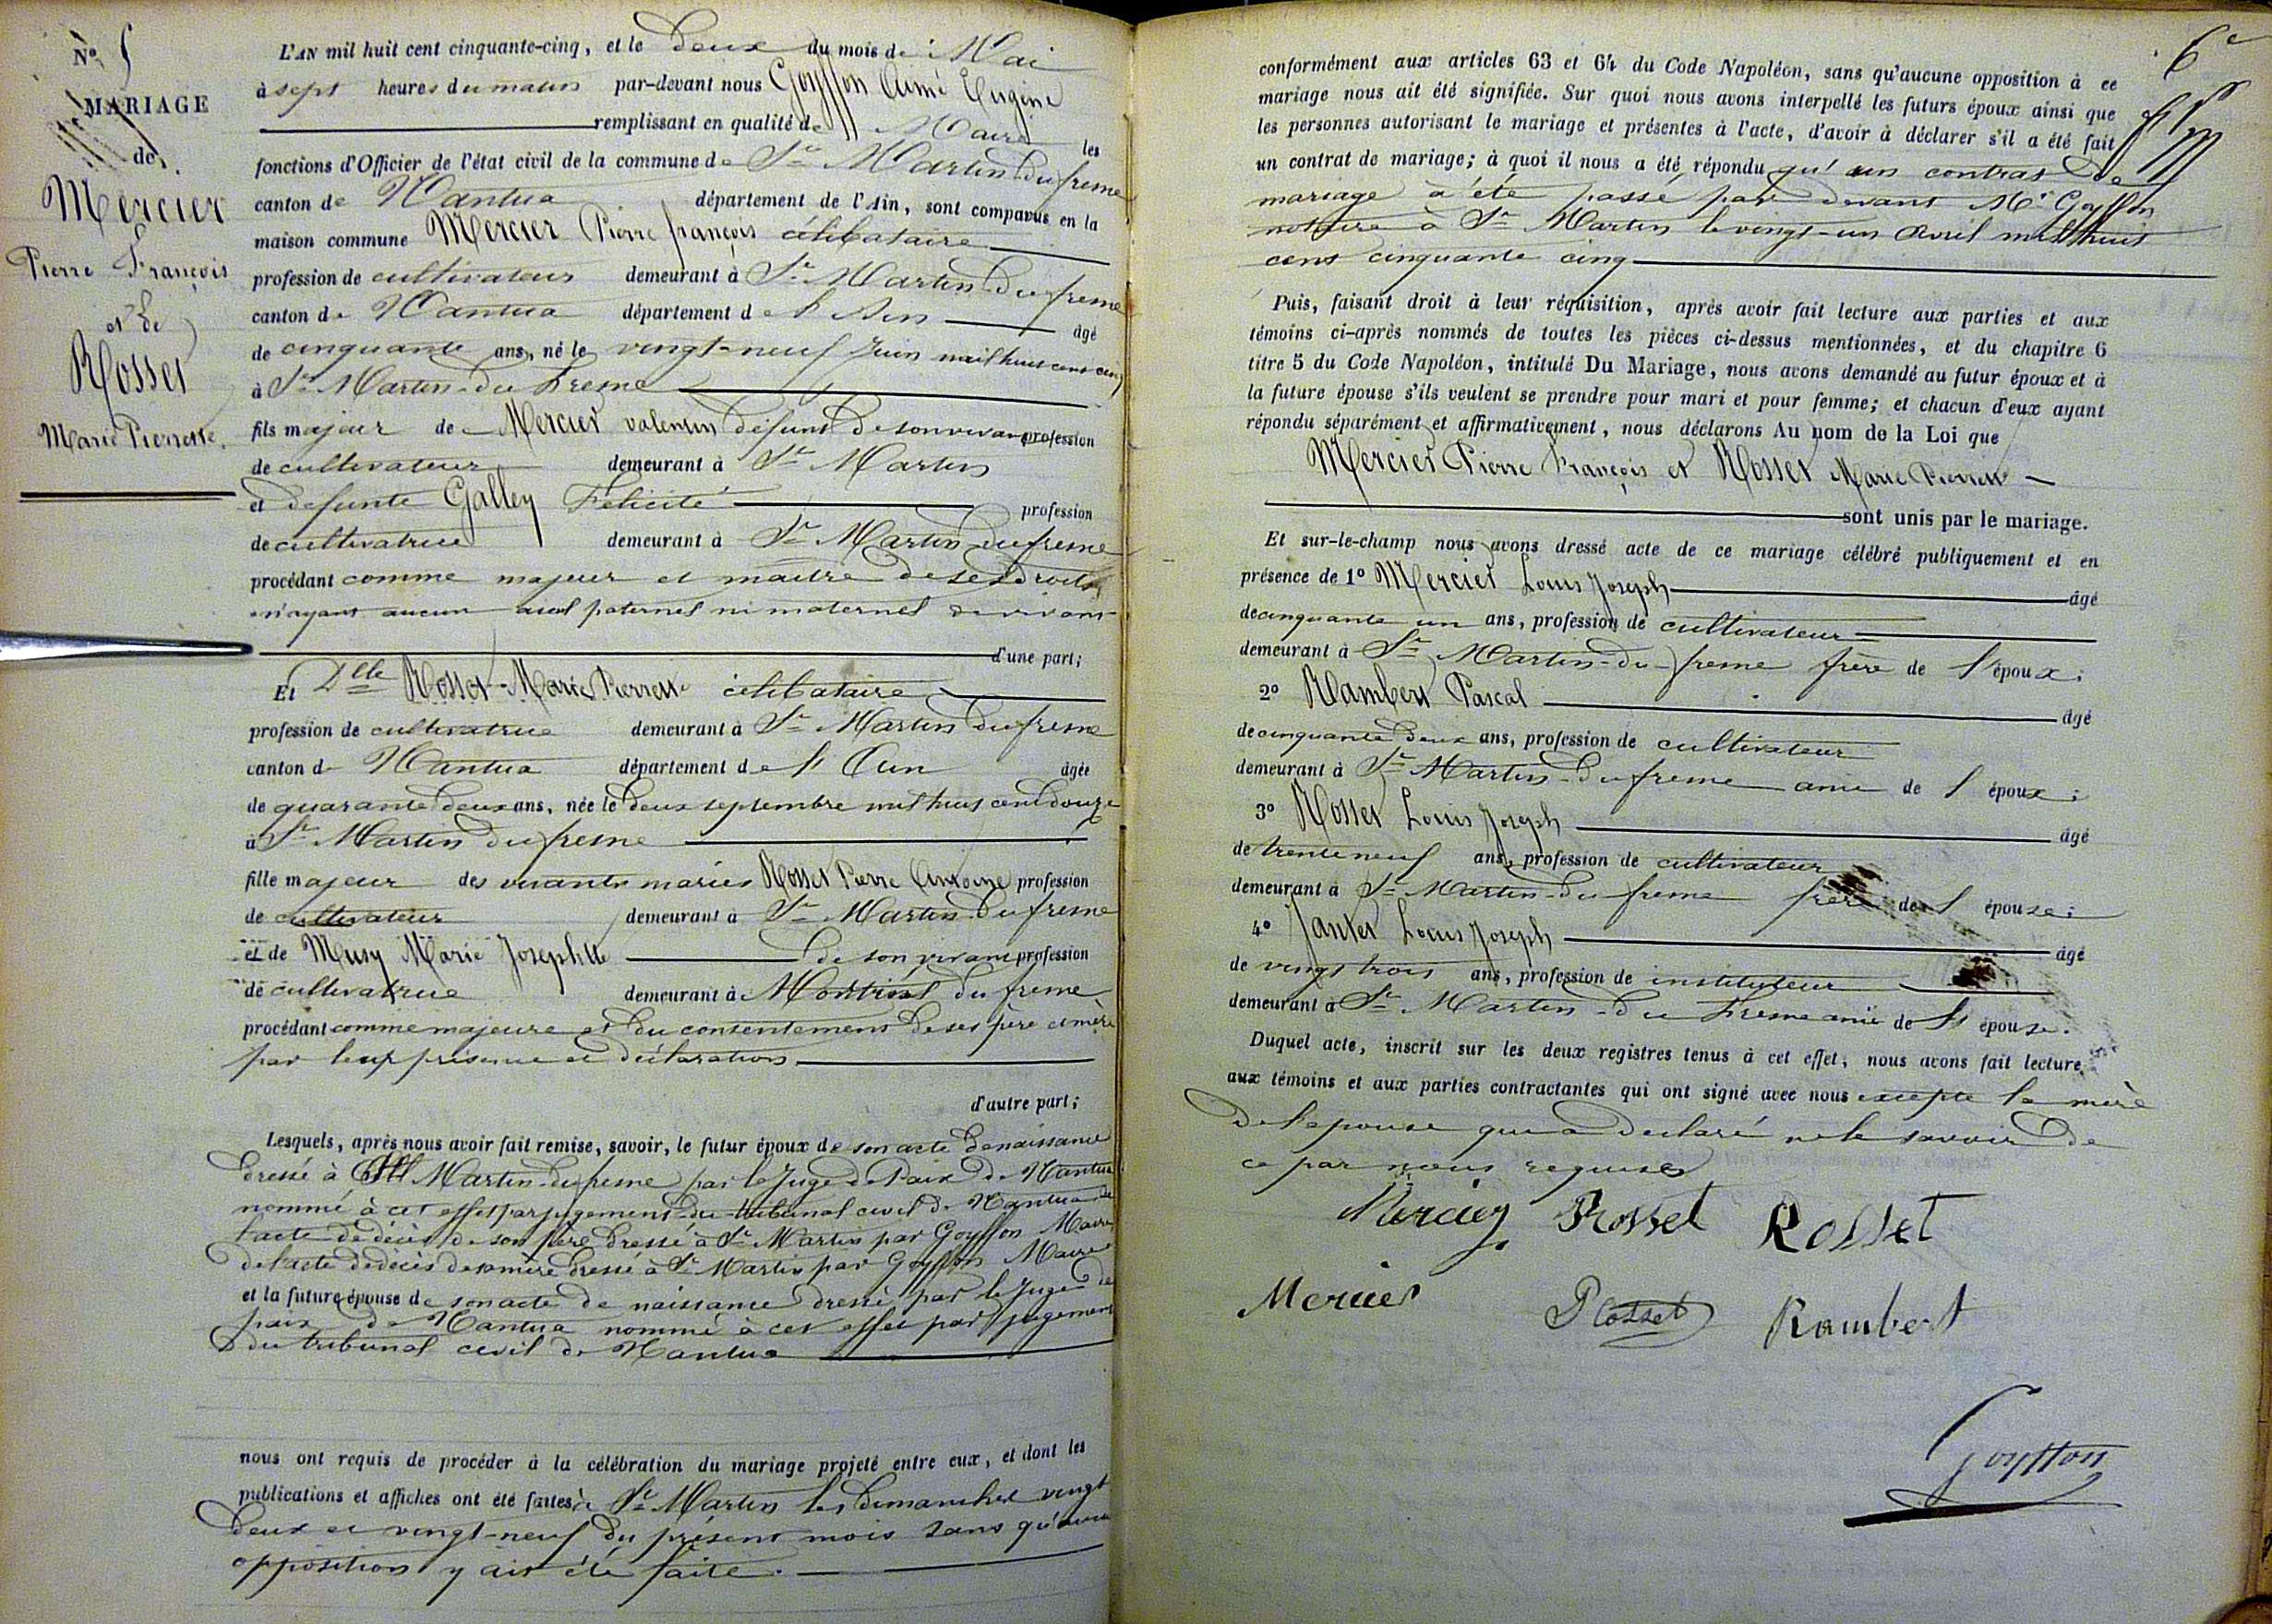 N° 5
MARIAGE
de
Mercier
Pierre François
et de
Rosset
Marie Pierrette.
L'AN mil huit cent cinquante-cinq, et le deux du mois de Mai
à sept heures du matin par-devant nous Goyffon Aimé Eugène
remplissant en qualité de Maire les
fonctions d'Officier de l'état civil de la commune de St Martin du fresne
canton de Nantua département de l'Ain, sont comparus en la
maison commune Mercier Pierre françois célibataire
profession de cultivateur demeurant à St Martin du fresne
canton de Nantua département de l'Ain âgé
de cinquante ans, né le vingt-neuf Juin mil huit cent cinq
à St Martin-du Fresne
fils majeur de Mercier valentin défunt de son vivant profession
de cultivateur demeurant à St Martin
et defunte Galley Félicité profession
de cultivatrice demeurant à St Martin du fresne
procédant comme majeur et maitre de ses droits
n'ayant aucun aieul paternel ni maternel de vivant
d'une part;
Et Dlle Rosset Marie Pierrette célibataire
profession de cultivatrice demeurant à St Martin du fresne
canton de Nantua département de l'Ain âgée
de quarante deux ans, née le deux septembre mil huit cent douze
à St Martin du fresne
fille majeur des vivants mariés Rosset Pierre Antoine profession
de cultivateur demeurant à St Martin du fresne
et de Musy Marie Josephtte de son vivant profession
de cultivatrice demeurant à du fresne
procédant comme majeure et du consentement de ses père et mère
par leur présence et déclaration
d'autre part;
Lesquels, après nous avoir fait remise, savoir, le futur époux de son acte de naissance
dressé à St Martin du fresne par le Juge de Paix de Nantua
nommé à cet effet par jugement du tribunal civil de Nantua de
l'acte de décès de son père dressé à St Martin par Goyffon Maire
de l'acte de décès de sa mère dressé à St Martin par Goyffon Maire
et la future épouse de son acte de naissance dressé par le Juge de
paix de Nantua nommé à cet effet par jugement
du tribunal civil de Nantua
nous ont requis de procéder à la célébration du mariage projeté entre eux, et dont les
publications et affiches ont été faites à St Martin les dimanches vingt
deux et vingt-neuf du présent mois sans qu'aucune
opposition y ait été faite.
6e
conformément aux articles 63 et 64 du Code Napoléon, sans qu'aucune opposition à ce
mariage nous ait été signifiée. Sur quoi nous avons interpellé les futurs époux ainsi que
les personnes autorisant le mariage et présentes à l'acte, d'avoir à déclarer s'il a été fait
un contrat de mariage; à quoi il nous a été répondu qu'un contrat de
mariage a été passé par devant Me Goyffon
notaire à St Martin le vingt-un Avril mil huit
cent cinquante cinq
Puis, faisant droit à leur réquisition, après avoir fait lecture aux parties et aux
témoins ci-après nommés de toutes les pièces ci-dessus mentionnées, et du chapitre 6
titre 5 du Code Napoléon, intitulé Du Mariage, nous avons demandé au futur époux et à
la future épouse s'ils veulent se prendre pour mari et pour femme; et chacun d'eux ayant
répondu séparément et affirmativement, nous déclarons Au nom de la Loi que
Mercier Pierre François et Rosset Marie Pierrette
sont unis par le mariage.
Et sur-le-champ nous avons dressé acte de ce mariage célébré publiquement et en
présence de 1° Mercier Louis Joseph âgé
de cinquante un ans, profession de cultivateur
demeurant à St Martin-du-fresne frère de l'époux;
2° Rambert Pascal âgé
de cinquante deux ans, profession de cultivateur
demeurant à St Martin-du fresne ami de l'époux;
3° Rosset Louis Joseph âgé
de trente neuf ans, profession de cultivateur
demeurant à St Martin-du fresne frère de l'épouse;
4° Jantet Louis Joseph âgé
de vingt trois ans, profession de instituteur
demeurant à St Martin-du Fresne ami de l'épouse.
Duquel acte, inscrit sur les deux registres tenus à cet effet, nous avons fait lecture
aux témoins et aux parties contractantes qui ont signé avec nous excepté la mère
de l'epouse qui a declaré ne le savoir de
ce par nous requise
Mercier Rosset Rosset
Mercier Rosset Rambert
Goyffon